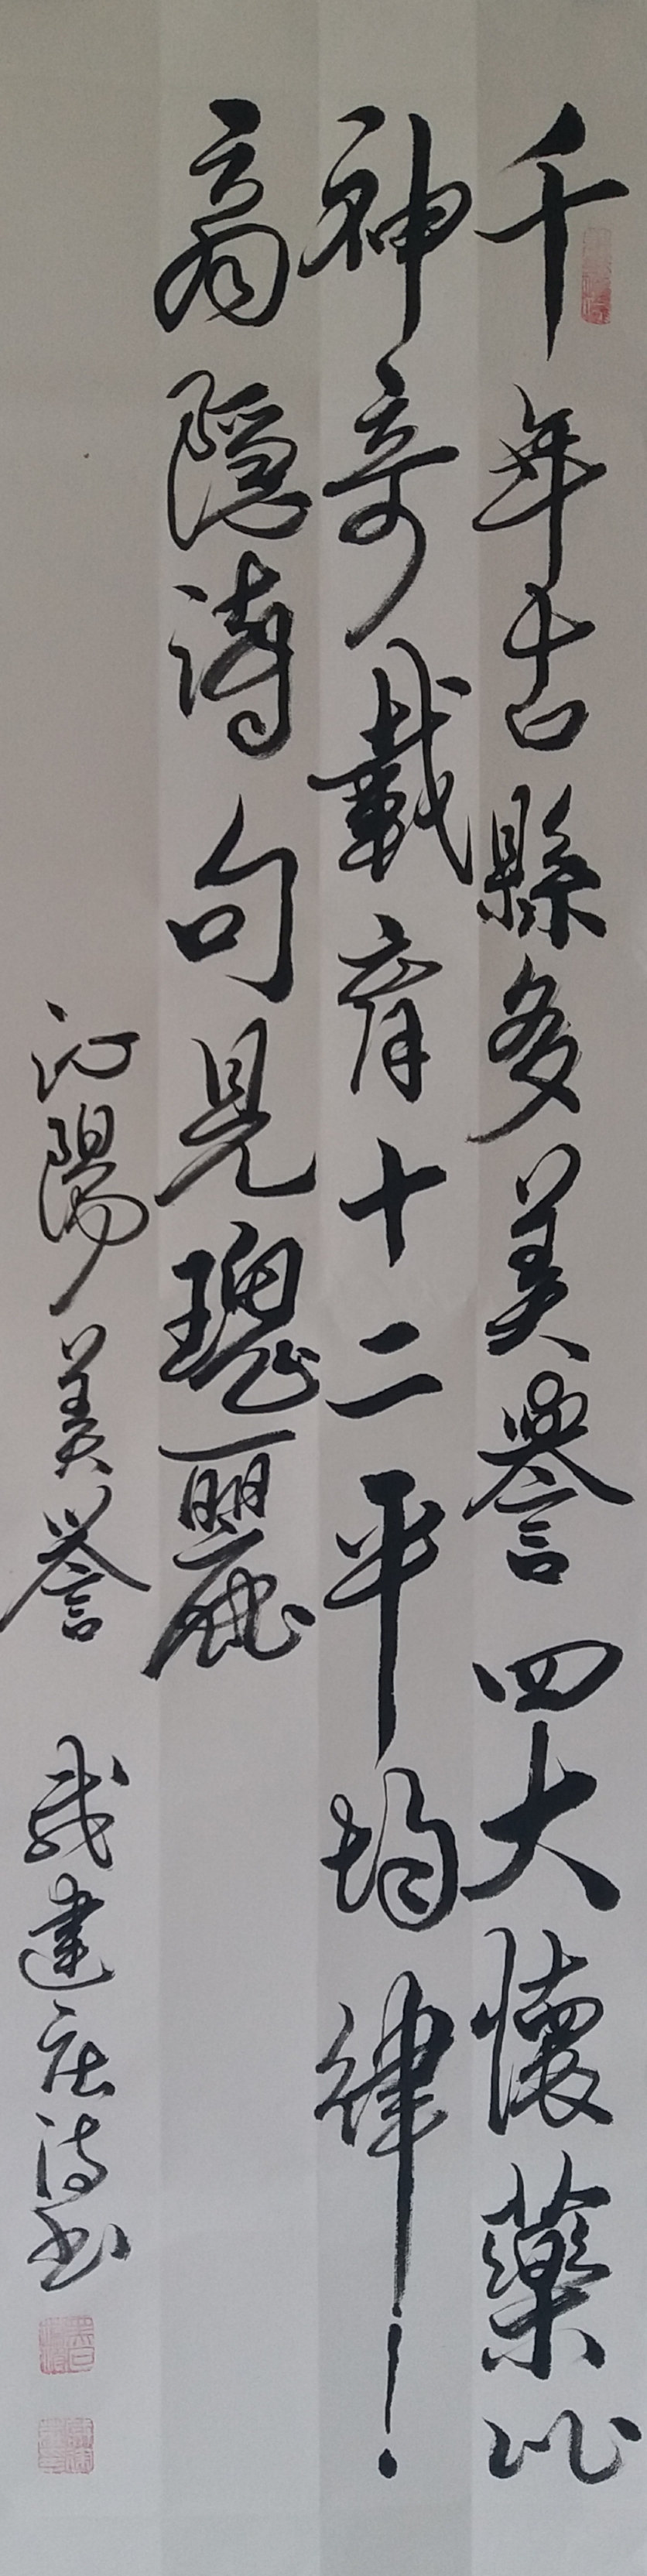 千年古縣多美譽四大懷藥以
神奇載育十二平均律！
商隱詩句見瑰麗
沁陽美誉 戚建庄诗书